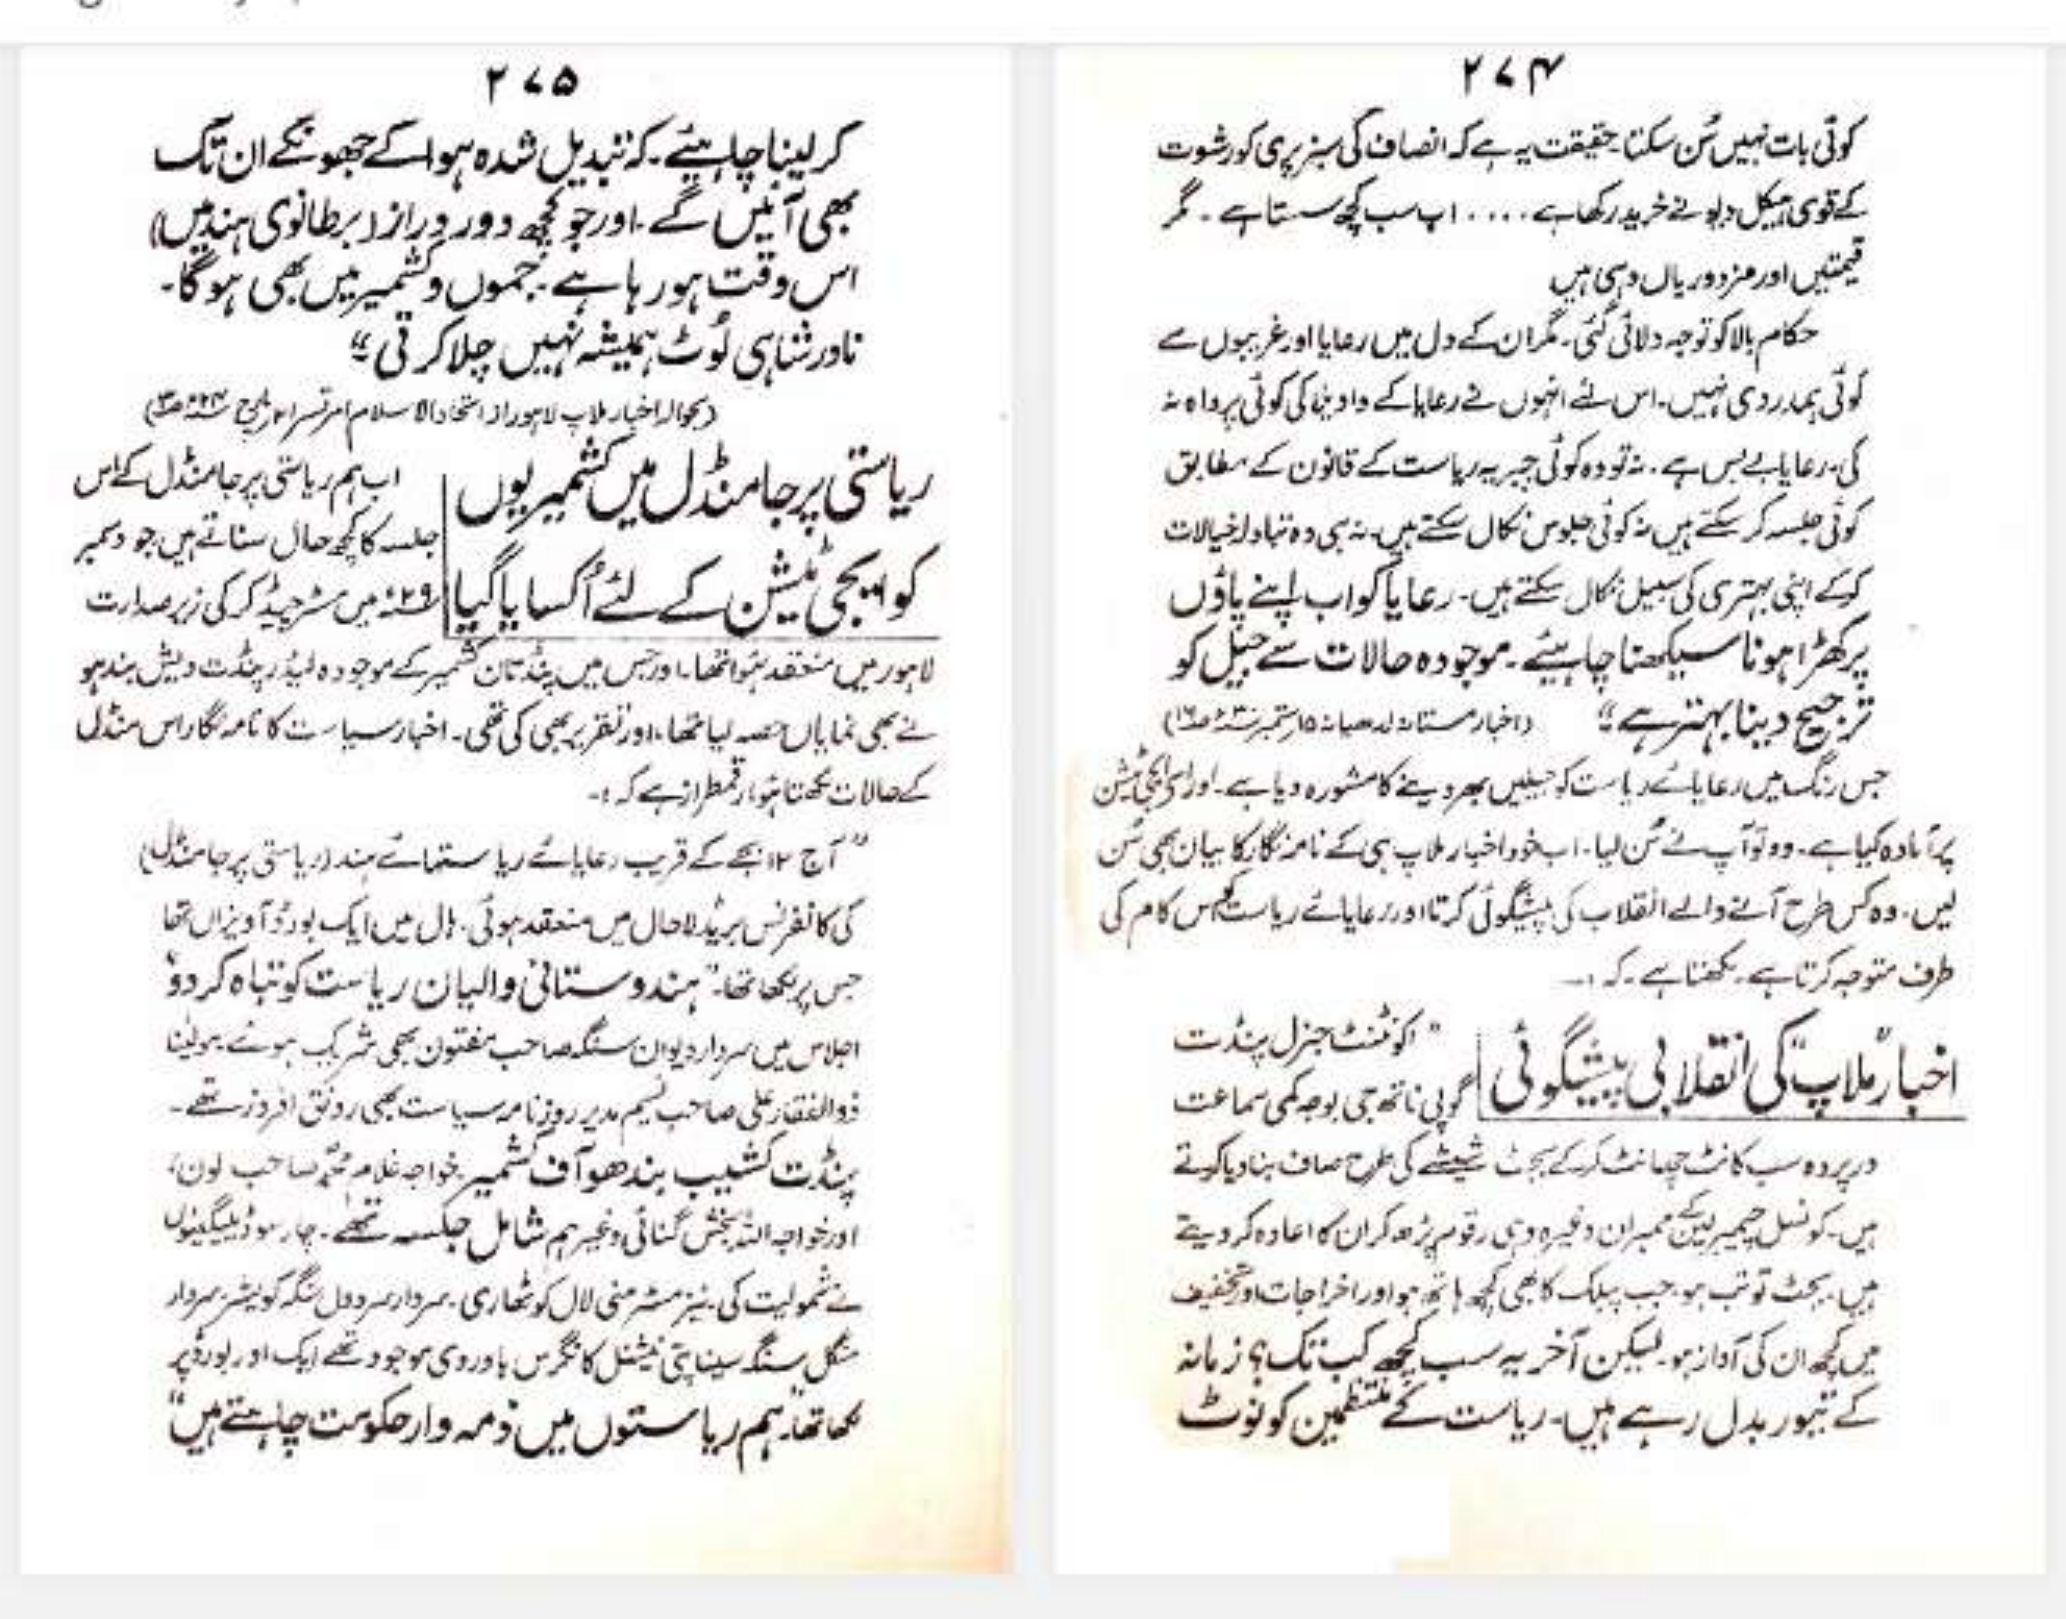 ۲۷۴
کوئی بات نہیں سُن سکتا۔ حقیقت یہ ہے کہ انصاف کی سبز پری کو رشوت
کے قوی ہیکل دیو نے خرید رکھا ہے .... اب سب کچھ سستا ہے ۔ مگر
قیمتیں اور مزدوریاں وہی ہیں
حکام بالا کو توجہ دلائی گئی۔ مگر ان کے دل میں رعایا اور غریبوں سے
کوئی ہمدردی نہیں۔ اس لئے انہوں نے رعایا کے واویلا کی کوئی پرواہ نہ
کی۔ رعایا بے بس ہے ۔ نہ تو وہ کوئی جبریہ ریاست کے قانون کے مطابق
کوئی جلسہ کر سکتے ہیں نہ کوئی جلوس نکال سکتے ہیں۔ نہ ہی وہ تبادلہ خیالات
کرکے اپنی بہتری کی سبیل نکال سکتے ہیں۔ رعایا کو اب اپنے پاؤں
پر کھڑا ہونا سیکھنا چاہیئے ۔ موجودہ حالات سے جیل کو
ترجیح دینا بہتر ہے“ (اخبار مستانہ لدھیانہ ۱۵ ستمبر
جس رنگ میں رعایائے ریاست کو جیلیں بھر دینے کا مشورہ دیا ہے۔ اور ایجی ٹیشن
پر آمادہ کیا ہے۔ وہ تو آپ نے سُن لیا۔ اب خود اخبار ملاپ ہی کے نامہ نگار کا بیان بھی سُن
لیں۔ وہ کس طرح آنے والے انقلاب کی پیشگوئی کرتا اور رعایائے ریاست کو اس کام کی
طرف متوجہ کرتا ہے۔ لکھتا ہے ۔ کہ :۔
اخبار ”ملاپ“ کی انقلابی پیشگوئی
”اکونٹنٹ جنرل پنڈت
گوپی ناتھ جی بوجہ کمی سماعت
درپردہ سب کانٹ چھانٹ کرکے بجٹ شیشے کی طرح صاف بنا دیا کرتے
ہیں۔ کونسل چیمبر میں ممبران وغیرہ وہی رقوم پڑھ کر ان کا اعادہ کر دیتے
ہیں۔ بجٹ تو تب ہو۔ جب پبلک کا بھی کچھ ہاتھ ہو اور اخراجات اور تخفیف
میں کچھ ان کی آواز ہو۔ لیکن آخر یہ سب کچھ کب تک؟ زمانہ
کے تیور بدل رہے ہیں۔ ریاست کے منتظمین کو نوٹ
۲۷۵
کر لینا چاہیئے۔ کہ تبدیل شدہ ہوا کے جھونکے ان تک
بھی آئیں گے۔ اور جو کچھ دور دراز (برطانوی ہند میں)
اس وقت ہو رہا ہے ۔ جموں و کشمیر میں بھی ہوگا۔
نادر شاہی لُوٹ ہمیشہ نہیں چلا کرتی“
(بحوالہ اخبار ملاپ لاہور از اتحاد الاسلام امرتسر
ریاستی پرجا منڈل میں کشمیریوں
کو ایجی ٹیشن کے لئے اُکسایا گیا
اب ہم ریاستی پرجا منڈل کے اس
جلسہ کا کچھ حال سناتے ہیں جو دسمبر
۲۹ء میں مسٹر چیڈکر کی زیر صدارت
لاہور میں منعقد ہُوا تھا۔ اور جس میں پنڈتان کشمیر کے موجودہ لیڈر پنڈت دیش بندھو
نے بھی نمایاں حصہ لیا تھا، اور تقریر بھی کی تھی۔ اخبار سیاست کا نامہ نگار اس منڈل
کے حالات لکھتا ہُوا رقمطراز ہے کہ :۔
” آج ۱۲ بجے کے قریب رعایائے ریاستہائے ہند (ریاستی پرجا منڈل)
کی کانفرنس بریڈلا ہال میں منعقد ہوئی۔ ہال میں ایک بورڈ آویزاں تھا
جس پر لکھا تھا۔ ”ہندوستانی والیان ریاست کو تباہ کر دو“
اجلاس میں سردار دیوان سنگھ صاحب مفتون بھی شریک ہوئے مولینا
ذوالفقار علی صاحب نسیم مدیر روزنامہ سیاست بھی رونق افروز تھے۔
پنڈت کشیپ بندھو آف کشمیر۔ خواجہ غلام محمد صاحب لون،
اور خواجہ اللہ بخش گنائی وغیرہم شامل جلسہ تھے۔ چار سو ڈیلیگیٹوں
نے شمولیت کی۔ نیز مسٹر منی لال کوٹھاری۔ سردار سردول سنگھ کویشر۔ سردار
منگل سنگھ سیناپتی نیشنل کانگرس باوردی موجود تھے ایک اور بورڈ پر
لکھا تھا ”ہم ریاستوں میں ذمہ وار حکومت چاہتے ہیں“